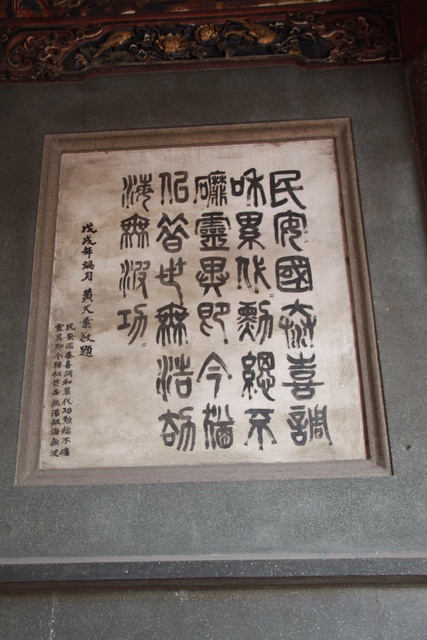 民安國泰喜調
和累代勳總不
磨靈異即今猶
似昔世無浩劫
海無波功
戊戌年端月 黃天素敬題
民安國泰喜調和累代功勳總不磨
靈異即今猶似昔世無浩劫海無波